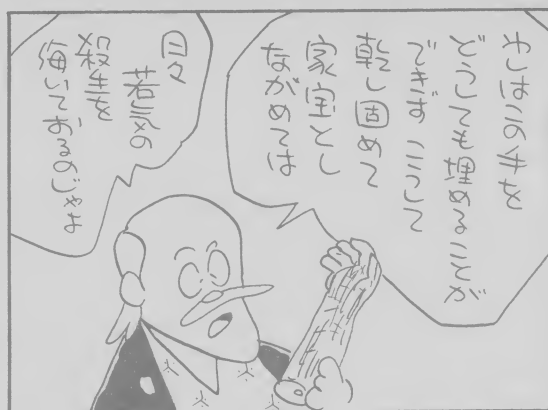 わしはこの手を
どうしても埋めることが
できず こうして
乾し固めて
家宝とし
ながめては
日々
若気の
殺生を
悔いておるのじゃよ